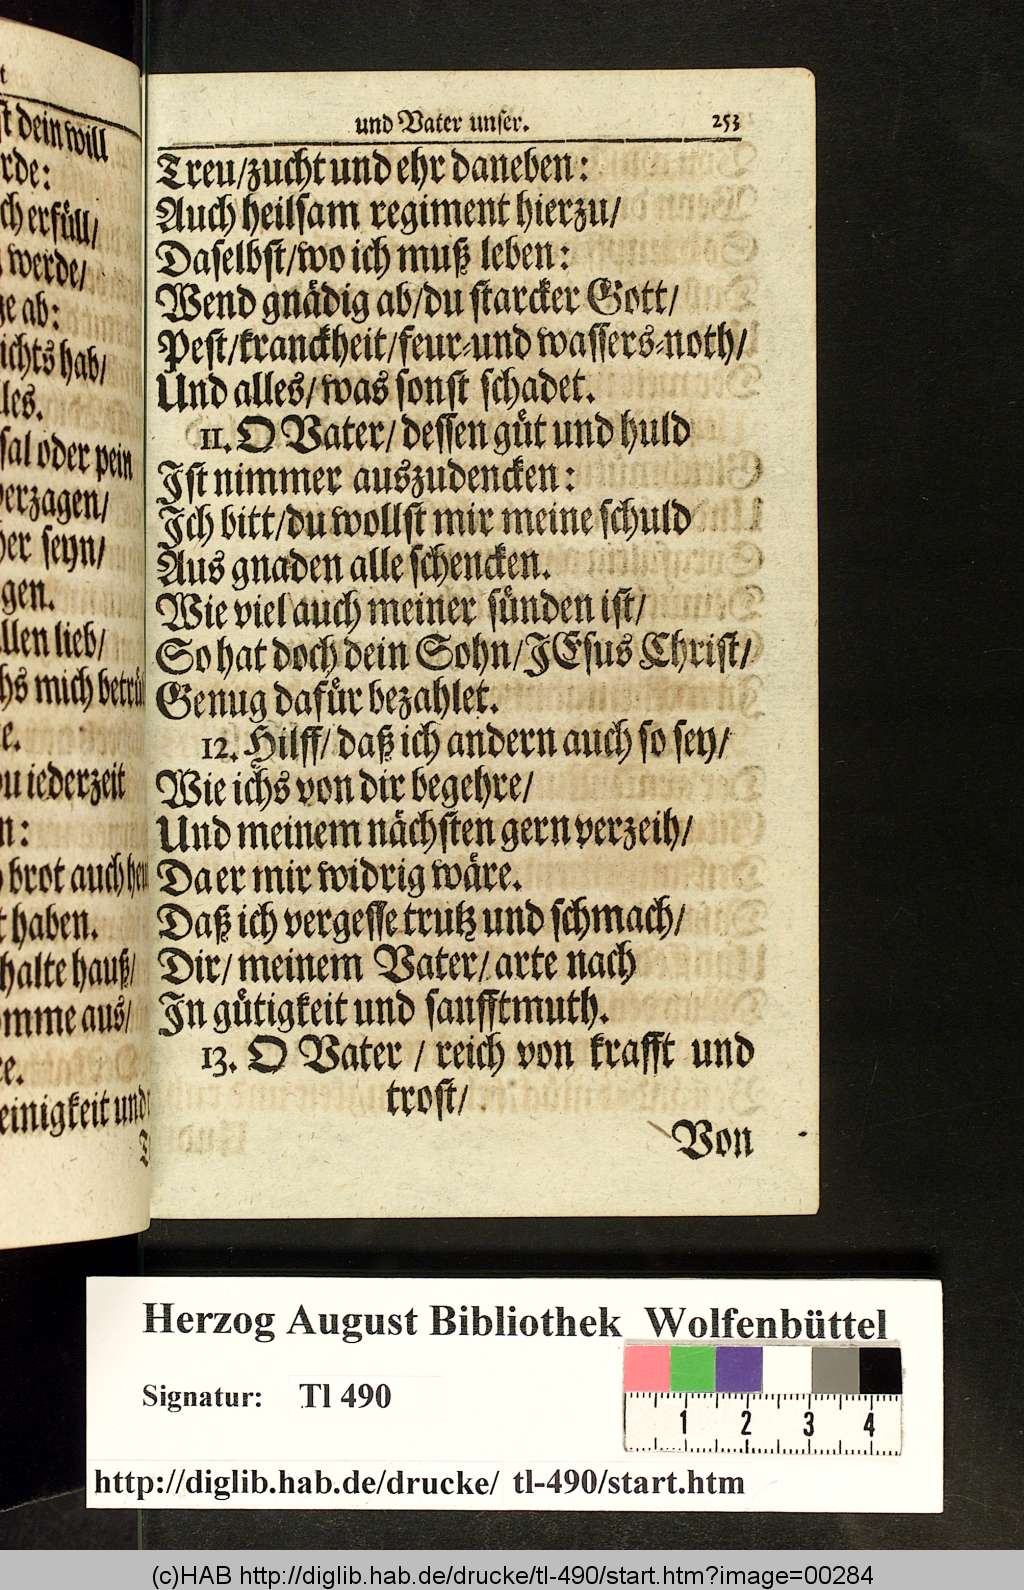 t
st dein will
rde:
ch erfüll/
werde/
ge ab:
ichts hab/
les.
sal oder pein
verzagen/
her seyn/
gen.
llen lieb/
chs mich betrü
e.
du iederzeit
n:
brot auch heu
t haben.
halte hauß/
omme aus/
re.
einigkeit und
und Vater unser. 253
Treu/zucht und ehr daneben:
Auch heilsam regiment hierzu/
Daselbst/wo ich muß leben:
Wend gnädig ab/du starcker Gott/
Pest/kranckheit/feur-und wassers-noth/
Und alles/was sonst schadet.
11. O Vater/ dessen güt und huld
Ist nimmer auszudencken:
Ich bitt/du wollst mir meine schuld
Aus gnaden alle schencken.
Wie viel auch meiner sünden ist/
So hat doch dein Sohn/JEsus Christ/
Genug dafür bezahlet.
12. Hilff/ daß ich andern auch so sey/
Wie ichs von dir begehre/
Und meinem nächsten gern verzeih/
Da er mir widrig wäre.
Daß ich vergesse trutz und schmach/
Dir/ meinem Vater/ arte nach
In gütigkeit und sanfftmuth.
13. O Vater / reich von krafft und
trost/
Von
Herzog August Bibliothek Wolfenbüttel
Signatur: Tl 490
1 2 3 4
http://diglib.hab.de/drucke/ tl-490/start.htm
(c)HAB http://diglib.hab.de/drucke/tl-490/start.htm?image=00284